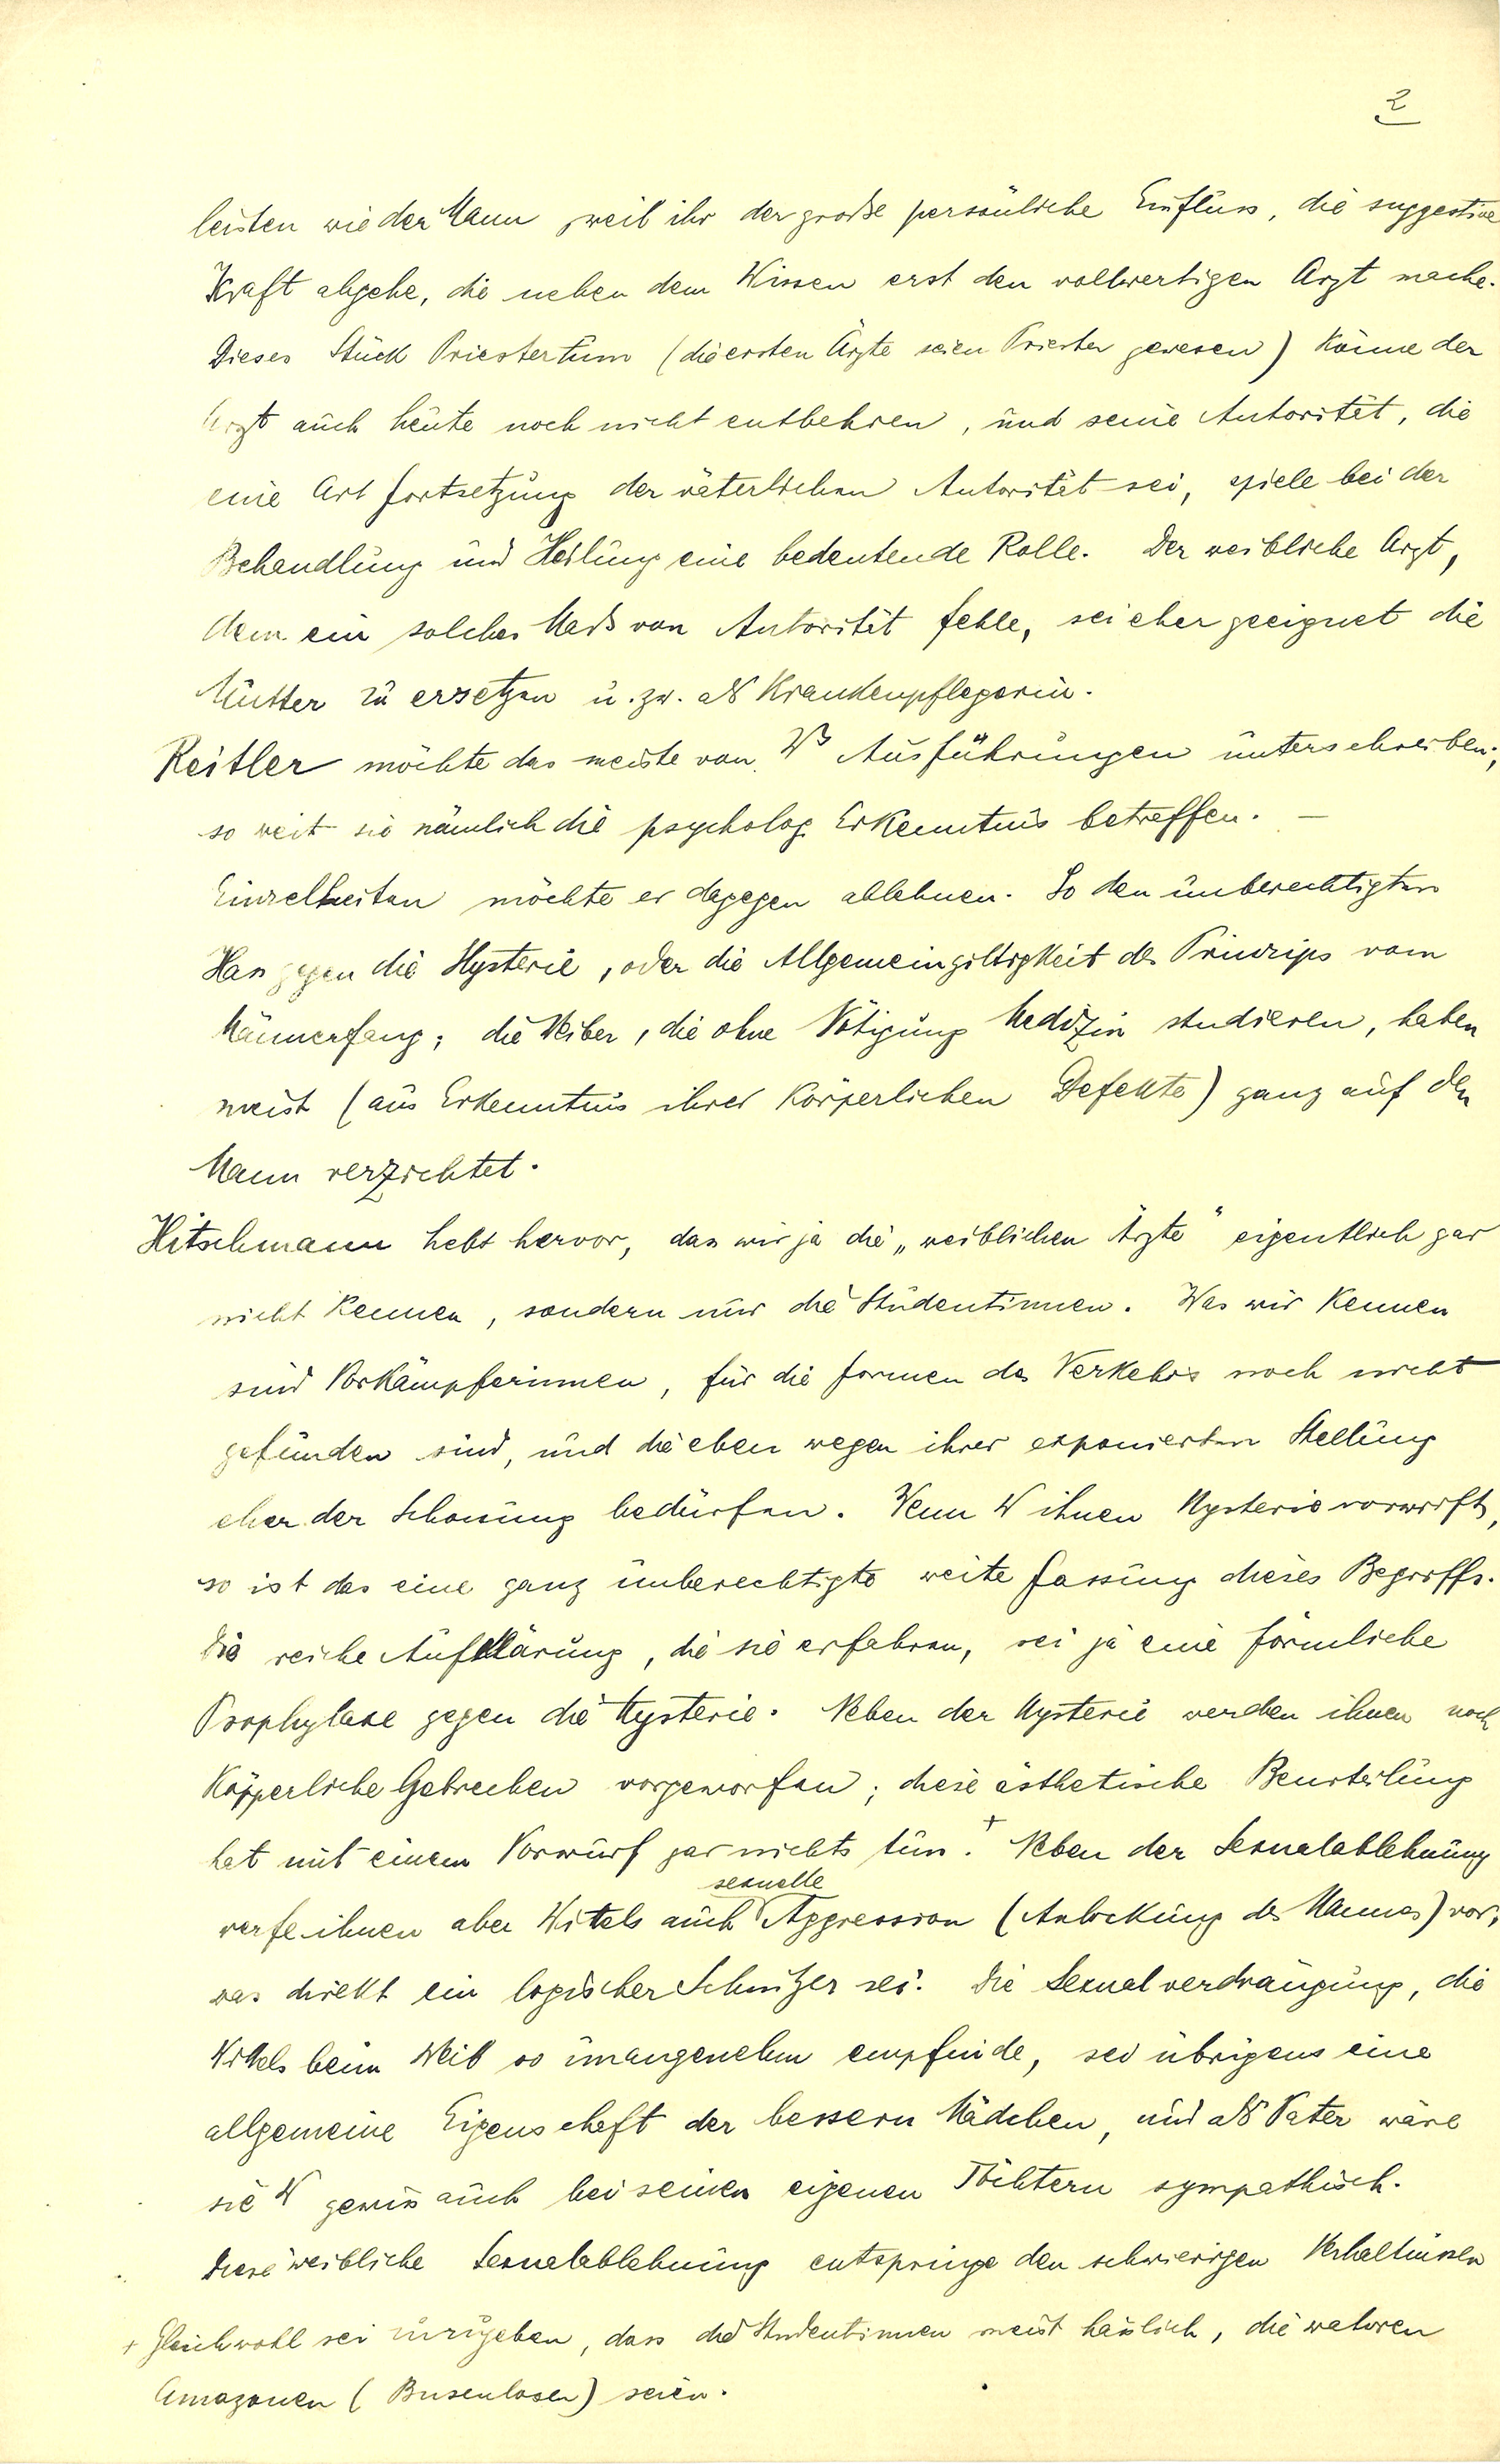 2
leisten wie der Mann, weil ihr der große persönliche Einfluss, die suggestive
Kraft abgehe, die neben dem Wissen erst den vollwertigen Arzt mache.
Dieses Stück Priestertum (die ersten Ärzte seien Priester gewesen) könne der
Arzt auch heute noch nicht entbehren, und seine Autorität, die
eine Art Fortsetzung der väterlichen Autorität sei, spiele bei der
Behandlung und Heilung eine bedeutende Rolle. Der weibliche Arzt,
dem ein solches Maß von Autorität fehle, sei eher geeignet die
Mutter zu ersetzen u. zw. als Krankenpflegerin.
Reitler möchte das meiste von Ws Ausführungen unterschreiben;
so weit sie nämlich die psycholog. Erkenntnis betreffen. —
Einzelheiten möchte er dagegen ablehnen. So den unberechtigten
Hass gegen die Hysterie, oder die Allgemeingiltigkeit des Prinzips vom
Männerfang; die Weiber, die ohne Nötigung Medizin studieren, haben
meist (aus Erkenntnis ihrer körperlichen Defekte) ganz auf den
Mann verzichtet.
Hitschmann hebt hervor, dass wir ja die „weiblichen Ärzte“ eigentlich gar
nicht kennen, sondern nur die Studentinnen. Was wir kennen
sind Vorkämpferinnen, für die Formen des Verkehrs noch nicht
gefunden sind, und die eben wegen ihrer exponierten Stellung
eher der Schonung bedürfen. Wenn W ihnen Hysterie vorwirft,
so ist das eine ganz unberechtigte weite Fassung dieses Begriffs.
Die reiche Aufklärung, die sie erfahren, sei ja eine förmliche
Prophylaxe gegen die Hysterie. Neben der Hysterie werden ihnen noch
körperliche Gebrechen vorgeworfen; diese ästhetische Beurteilung
hat mit einem Vorwurf gar nichts tun.+ Neben der Sexualablehnung
werfe ihnen aber Wittels auch sexuelle Aggression (Anlockung des Mannes) vor,
was direkt ein logischer Schnitzer sei. Die Sexualverdrängung, die
Wittels beim Weib so unangenehm empfinde, sei übrigens eine
allgemeine Eigenschaft der bessern Mädchen, und als Vater wäre
sie W gewiss auch bei seinen eigenen Töchtern sympathisch.
Diese weibliche Sexualablehnung entspringe den schwierigen Verhältnissen
+ Gleichwohl sei zuzugeben, dass die Studentinnen meist hässlich, die wahren
Amazonen (Busenlosen) seien.